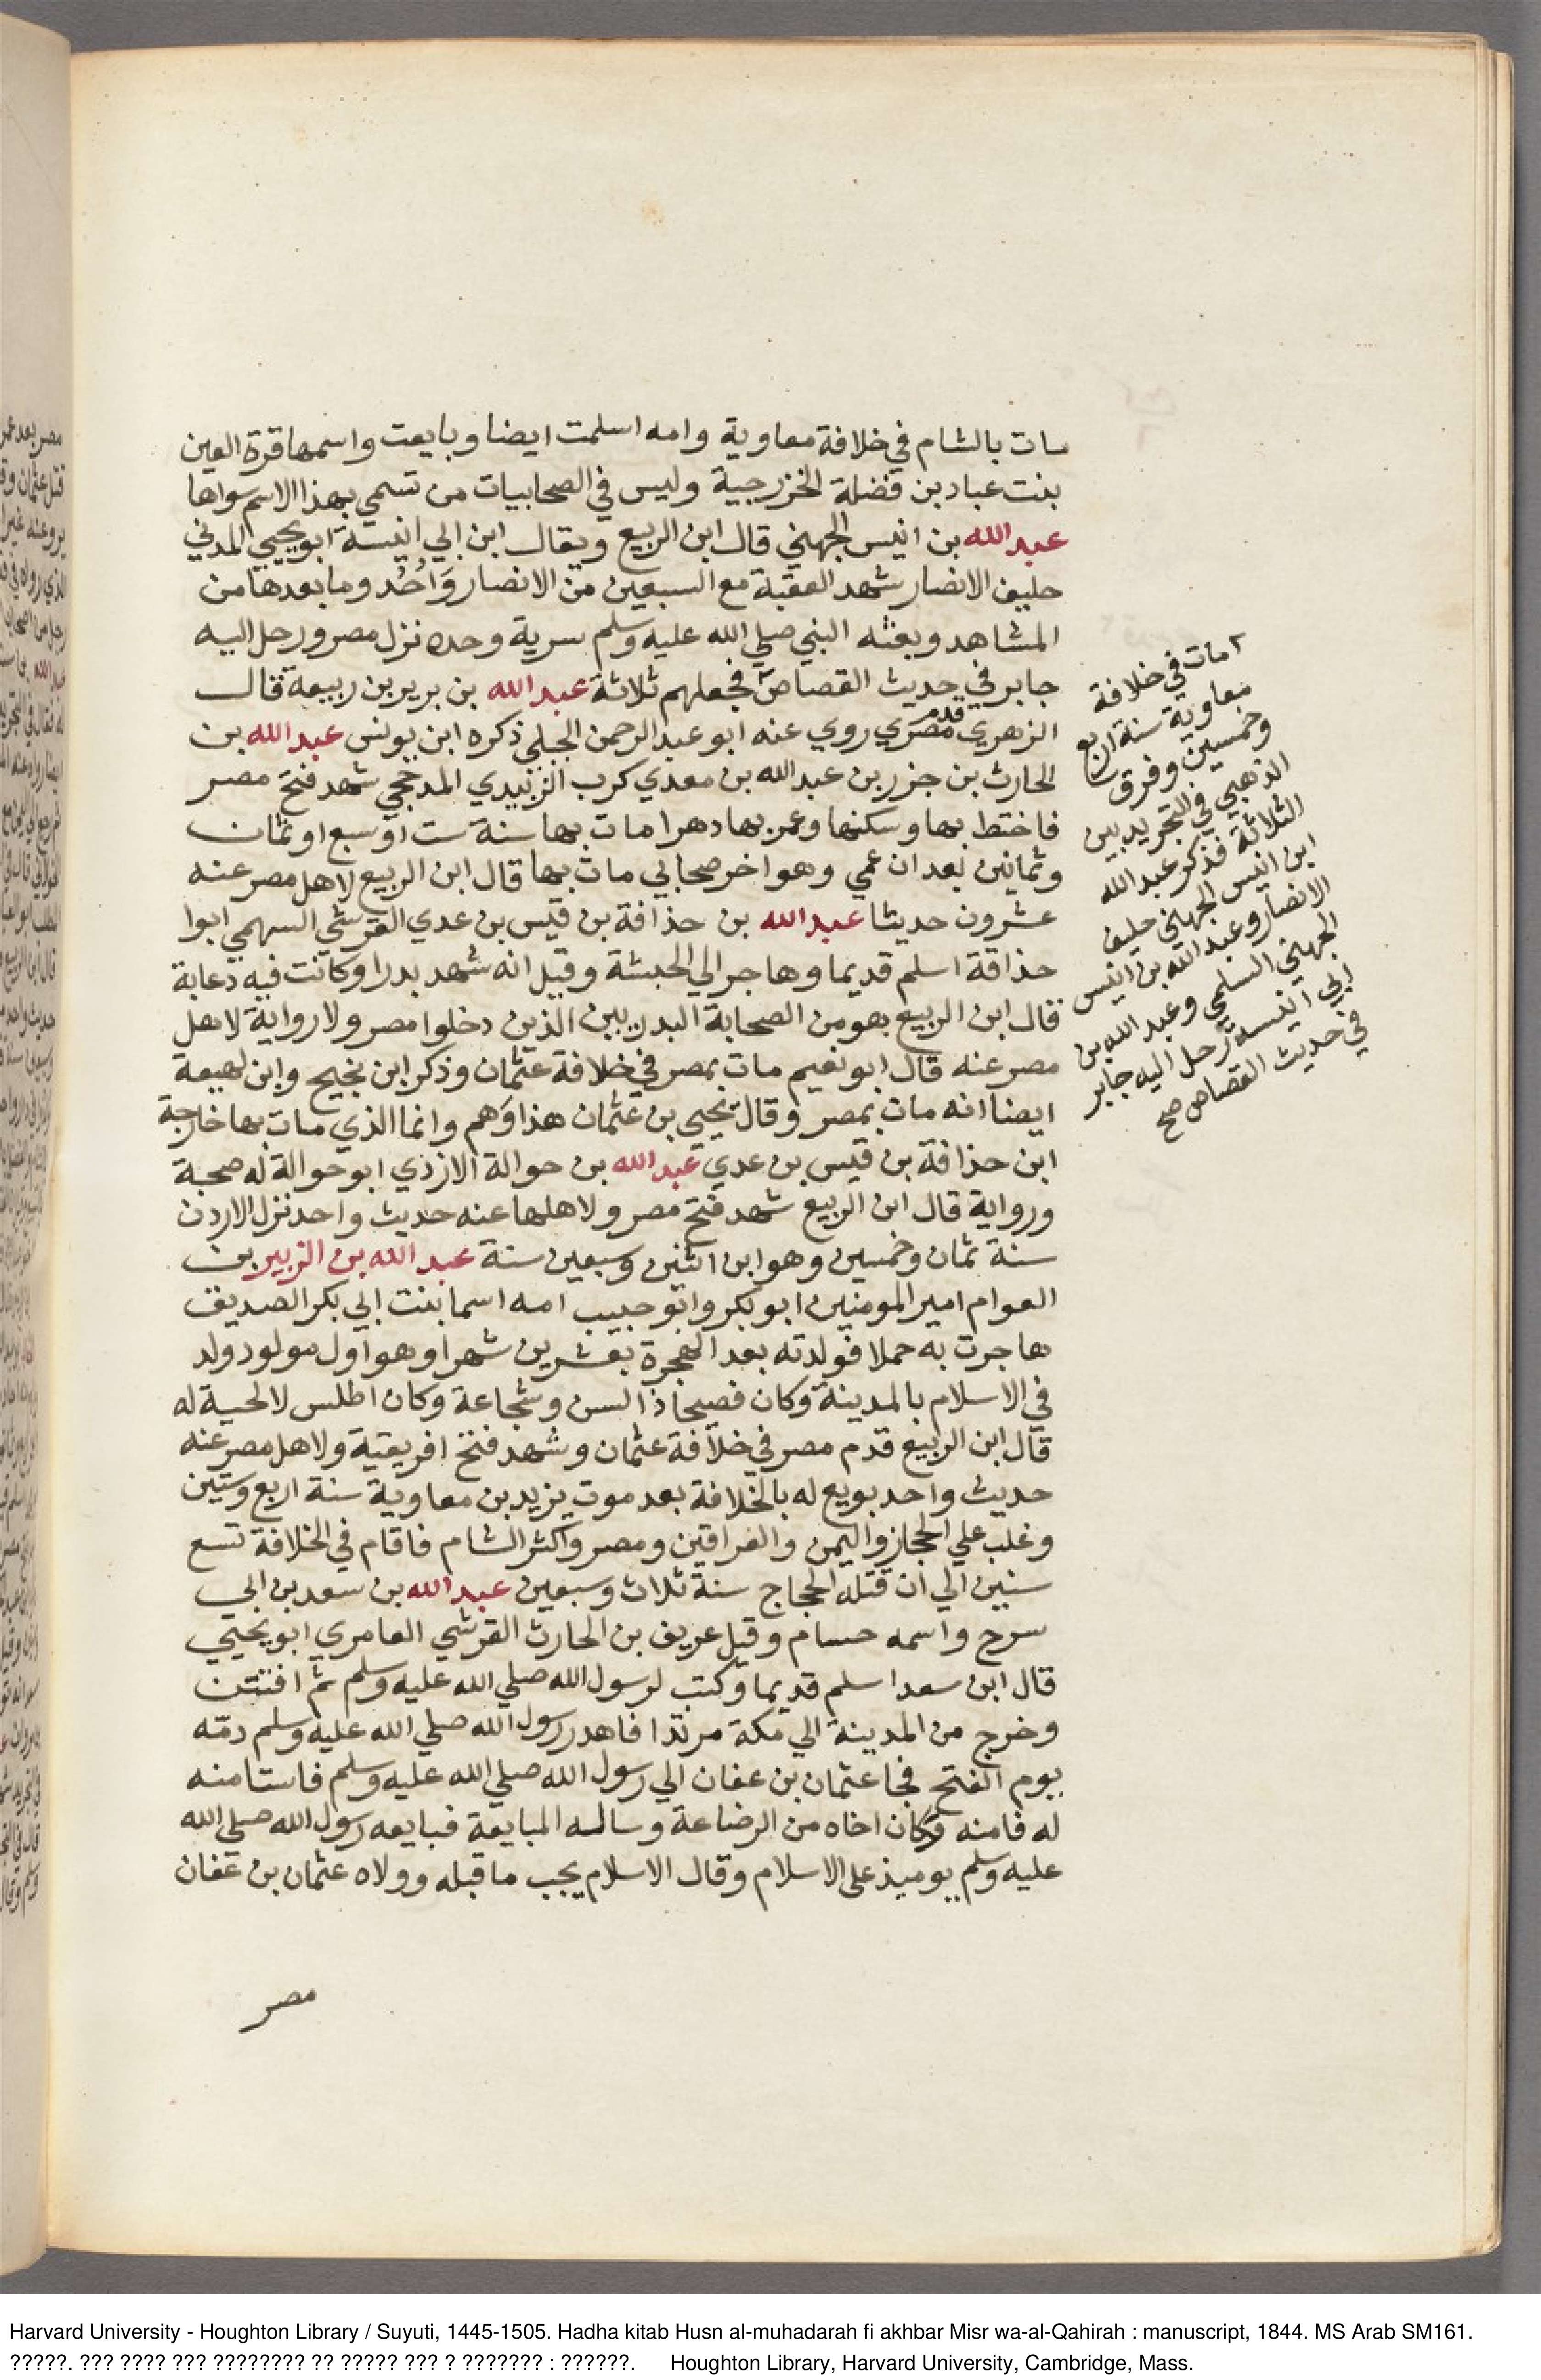 مات بالشام في خلافة معاوية وامه اسلمت ايضا وبايعت واسمها قرة العين
بنت عباد بن فضلة الخزرجية وليس في الصحابيات من تسمي بهذا الاسم سواها
عبد الله بن انيس الجهني قال ابن الربيع ويقال ابن ابي انيسة ابو يحيي المدني
حليف الانصار شهد العقبة مع السبعين من الانصار وَاُحُد وما بعدها من
المشاهد وبعثه النبي صلي الله عليه وسلم سرية وحده نزل مصر ورحل اليه
جابر في حديث القصاص فجعلهم ثلاثة عبد الله بن برير بن ربيعة قال
الزهري قدم مصري روي عنه ابو عبد الرحمن الجبلي ذكره ابن يونس عبد الله بن
الحارث بن جزر بن عبد الله بن معدي كرب الزبيدي المدججي شهد فتح مصر
فاختط بها وسكنها وعمر بها دهرا مات بها سنة ست او سبع او ثمان
وثمانين بعد ان عمي وهو اخر صحابي مات بها قال ابن الربيع لاهل مصر عنه
عشرون حديثا عبد الله بن حذافة بن قيس بن عدي القرشي السهمي ابوا
حذاقة اسلم قديما وهاجر الي الحبشة وقيل انه شهد بدرا وكانت فيه دعابة
قال ابن الربيع هو من الصحابة البدريين الذين دخلوا مصر ولا رواية لاهل
مصر عنه قال ابو نعيم مات بمصر في خلافة عثمان وذكر ابن نجيح وابن لهيعة
ايضا انه مات بمصر وقال يحيي بن عثمان هذا وَهم وانما الذي مات بها خارجة
ابن حذافة بن قيس بن عدي عبد الله بن حوالة الازدي ابو حوالة له صحبة
ورواية قال ابن الربيع شهد فتح مصر ولاهلها عنه حديث واحد نزل الاردن
سنة ثمان وخمسين وهو ابن اثنين وسبعين سنة عبد الله بن الزبير بن
العوام امير المومنين ابو بكر وابو حبيب امه اسما بنت ابي بكر الصديق
هاجرت به حملا فولدته بعد الهجرة بعشرين شهرا وهو اول مولود ولد
في الاسلام بالمدينة وكان فصيحا ذا لسن وشجاعة وكان اطلس لا لحية له
قال ابن الربيع قدم مصر في خلافة عثمان وشهد فتح افريقية ولاهل مصر عنه
حديث واحد بويع له بالخلافة بعد موت يزيد بن معاوية سنة اربع وستين
وغلب علي الحجاز واليمن والعراقين ومصر واكثر الشام فاقام في الخلافة تسع
سنين الي ان قتله الحجاج سنة ثلاث وسبعين عبد الله بن سعد بن ابي
سرح واسمه حسام وقيل عريف بن الحارث القرشي العامري ابو يحيي
قال ابن سعد اسلم قديما وكتب لرسول الله صلي الله عليه وسلم ثم افتتن
وخرج من المدينة الي مكة مرتدا فاهدر رسول الله صلي الله عليه وسلم دمه
يوم الفتح فجا عثمان بن عفان الي رسول الله صلي الله عليه وسلم فاستامنه
له فامنه وكان اخاه من الرضاعة وساله المبايعة فبايعه رسول الله صلي الله
عليه وسلم يوميذ علي الاسلام وقال الاسلام يجب ما قبله وولاه عثمان بن عفان
مصر
مات في خلافة
معاوية سنة اربع
وخمسين وفرق
الذهبي في التجريد بين
الثلاثة فذكر عبد الله
ابن انيس الجهني حليف
الانصار وعبد الله بن انيس
الجهني السلمي وعبد الله بن
ابي انيسة رحل اليه جابر
في حديث القصاص صح
Harvard University - Houghton Library / Suyuti, 1445-1505. Hadha kitab Husn al-muhadarah fi akhbar Misr wa-al-Qahirah : manuscript, 1844. MS Arab SM161.
?????. ??? ???? ??? ???????? ?? ????? ??? ? ??????? : ??????. Houghton Library, Harvard University, Cambridge, Mass.